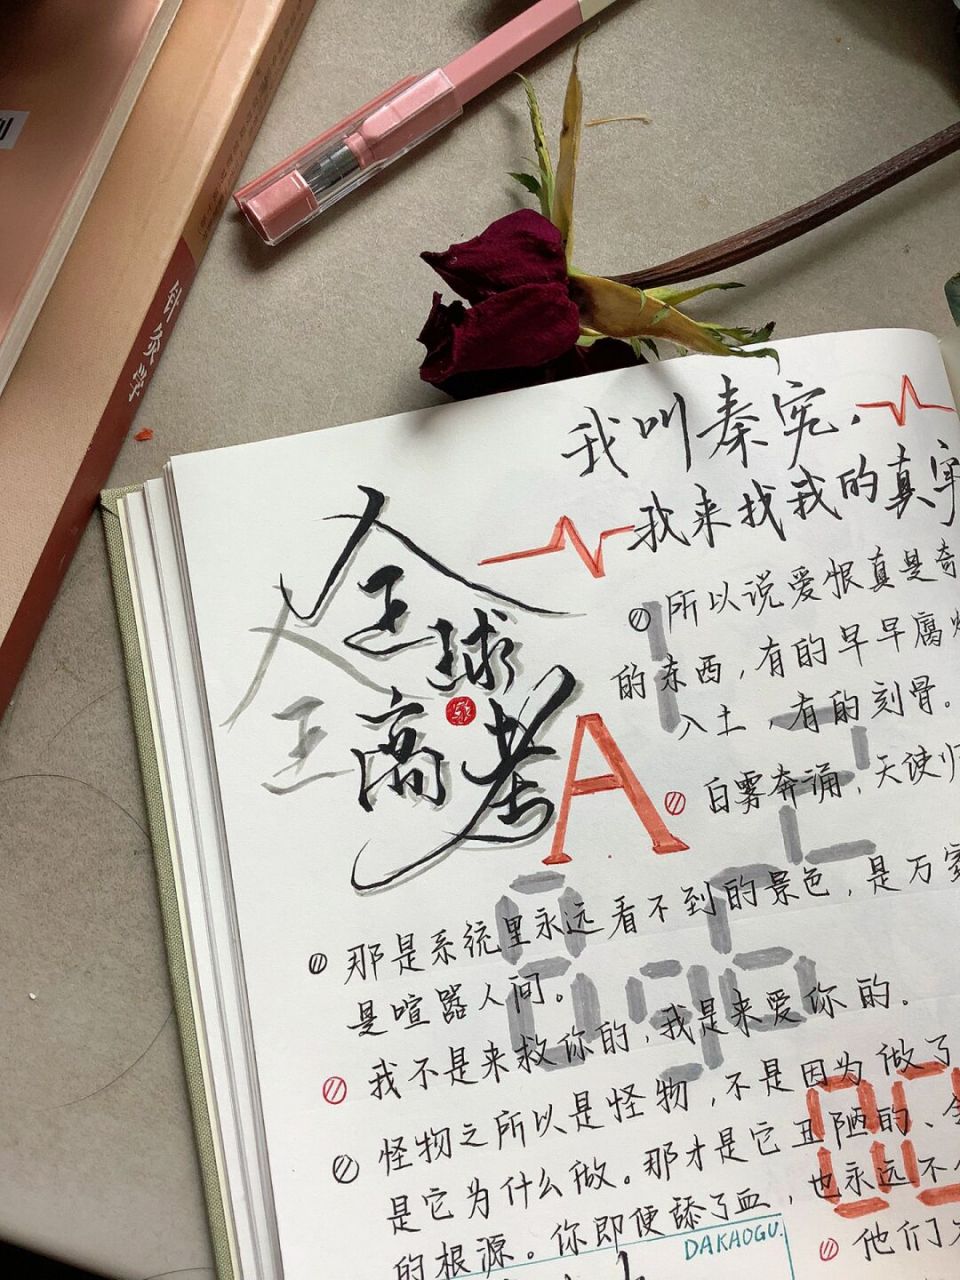 我叫秦究.
我来找我的真实
全球
高考
A
所以说爱恨真是奇
的东西,有的早早腐烂
入土,有的刻骨。
白雾奔涌,天使归
那是系统里永远看不到的景色,是万家
是喧嚣人间。
我不是来救你的,我是来爱你的.
怪物之所以是怪物,不是因为做了
是它为什么做。那才是它丑陋的、
的根源。你即使舔了血,也永远不
DAKAOGU.
他们